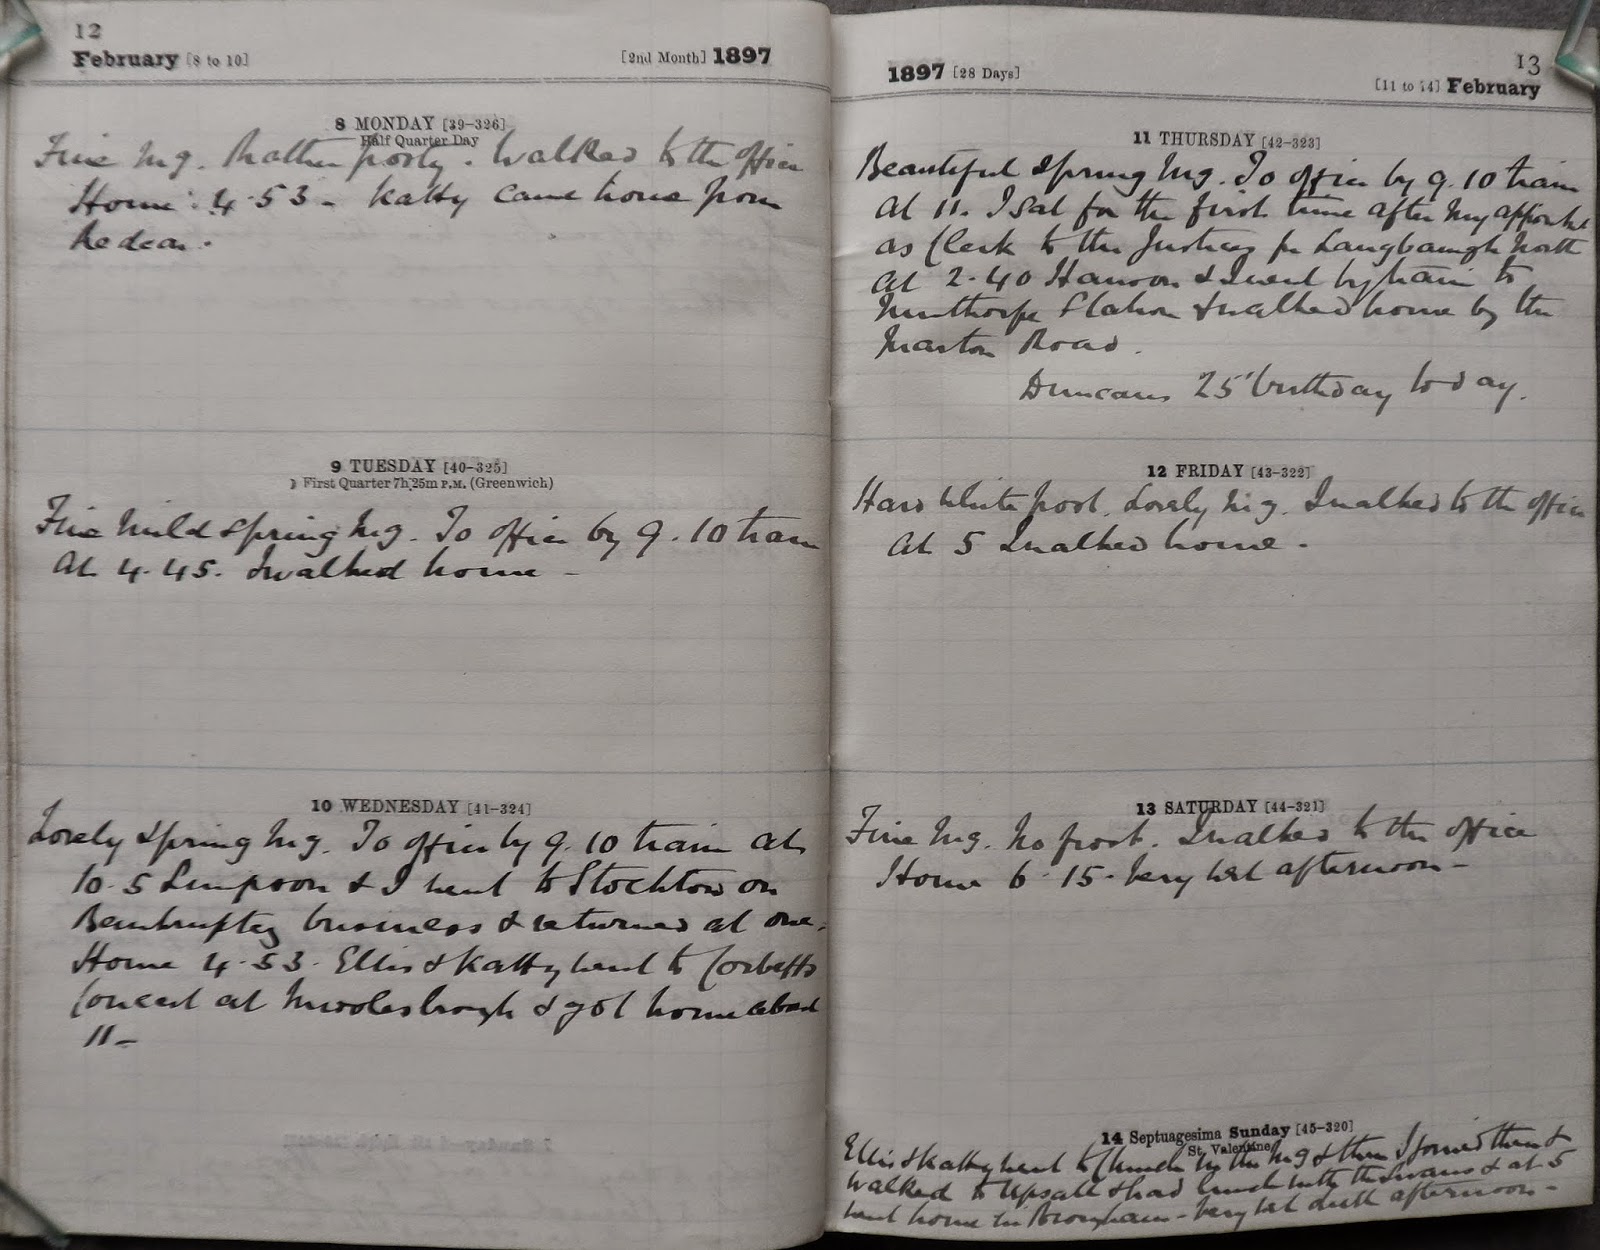 12
February [8 to 10] [2nd Month] 1897
8 MONDAY [39-326]
Half Quarter Day
Fine Mg. Rather frosty. Walked to the office
Home 4.53 - Katty came home from
Redcar.
9 TUESDAY [40-325]
☽ First Quarter 7h 25m P.M. (Greenwich)
Fine mild spring Mg. To office by 9.10 train
At 4.45. I walked home -
10 WEDNESDAY [41-324]
Lovely spring Mg. To office by 9.10 train at
10.5 Simpson & I went to Stockton on
Bankruptcy business & returned at one.
Home 4.53. Ellis & Katty went to Corbetts
Concert at Middlesbrough & got home about
11 -
13
1897 [28 Days] [11 to 14] February
11 THURSDAY [42-323]
Beautiful spring Mg. To office by 9.10 train
At 11. I sat for the first time after my
as Clerk to the Justices for Langbaurgh North
At 2.40 & I went by train to
Nunthorpe Station & walked home by the
Marton Road.
Duncans 25 birthday today.
12 FRIDAY [43-322]
Hard white frost. Lovely Mg. I walked to the office
At 5 I walked home -
13 SATURDAY [44-321]
Fine Mg. No frost. I walked to the office
Home 6.15. Very wet afternoon -
14 Septuagesima Sunday [45-320]
St. Valentine
Ellis & Katty went to Church in the Mg & then I joined them &
walked to Upsall & had lunch with the & at 5
went home in Brougham - Very wet afternoon -